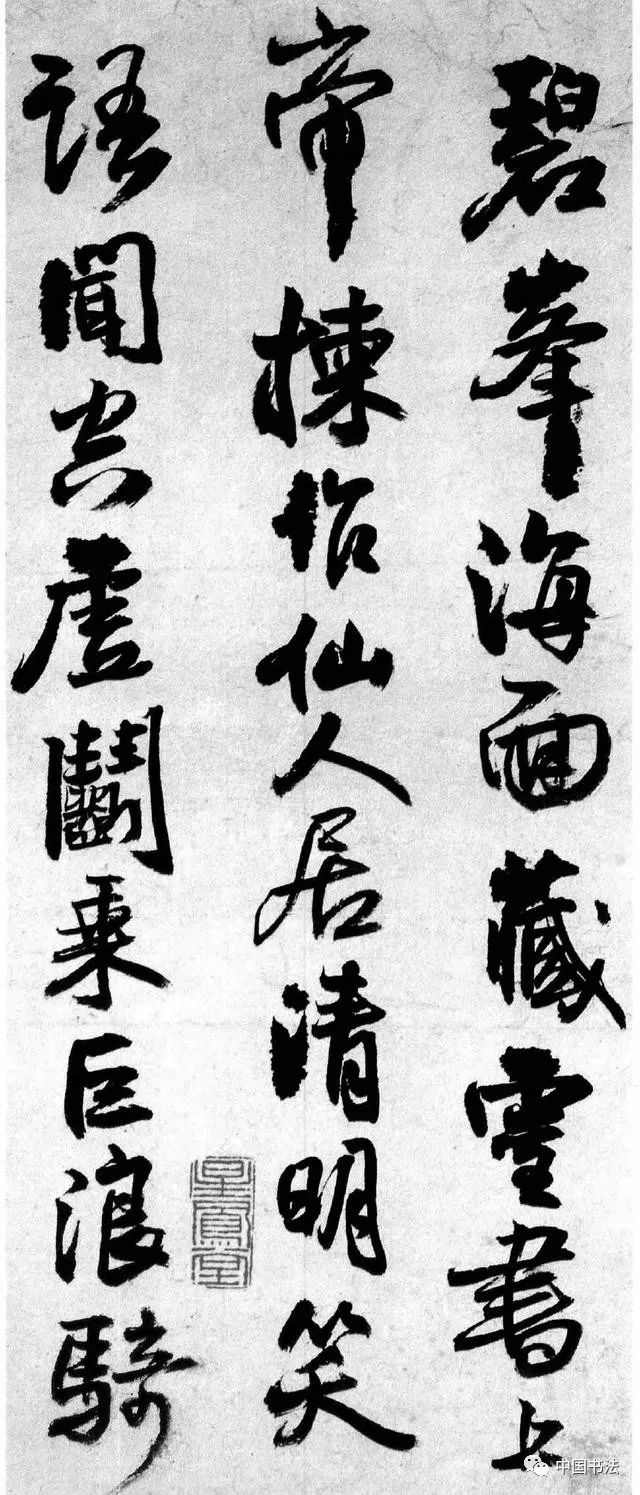 碧峯海面藏靈書上
帝揀作仙人居清明笑
語聞空虛鬭乘巨浪騎
中国书法